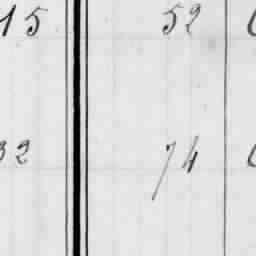 15 52
32 74